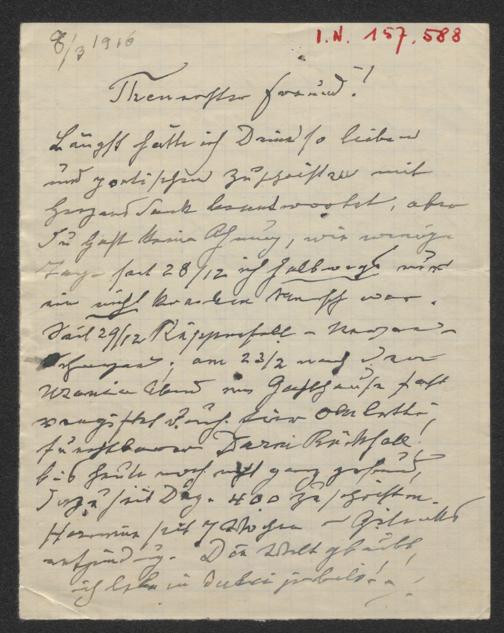 8/3 1916
I.N. 157.588
Theuerster Freund!
Längst hätte ich Deine so lieben
und poetischen Zuschriften mit
Herzensdank beantwortet, aber
Du hast keine Ahnung, wie wenige
Tage seit 28/12 ich halbwegs nur
ein nicht kranker Mensch war.
Seit 29/12 Rippenfell - Nerven-
; am 23/2 nach der
Urania Abend im Gasthause fast
vergiftet durch eine Omelette,
furchtbarer Darm Rückfall
bis heute noch nicht ganz gesund,
dazu seit Dez. 400 Zuschriften.
Hermine seit 7 Wochen - Gelenks
entzündg. Die Welt glaubt,
ich lebe in dulci jubilo!